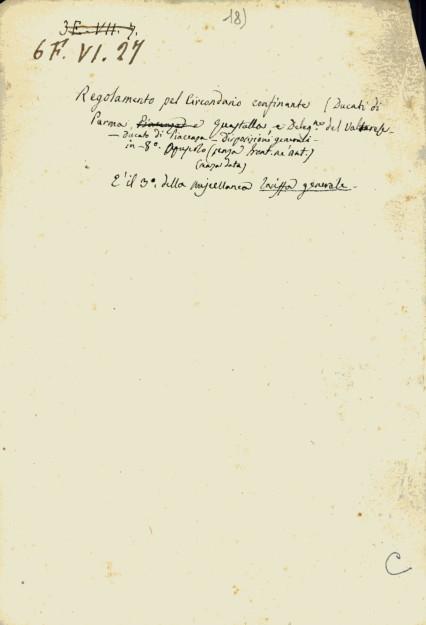 18)
3. E. VII. 7.
6 F. VI. 27
Regolamento pel Circondario confinante (Ducati di
Parma Piacenza e Guastalla, e Deleg.ne del Valtarese
— Ducato di Piacenza — Disposizioni generali —
in - 8°. Opuscolo (senza front. nè ant.)
(senza data)
E' il 3°. della miscellanea Tariffa generale.
C